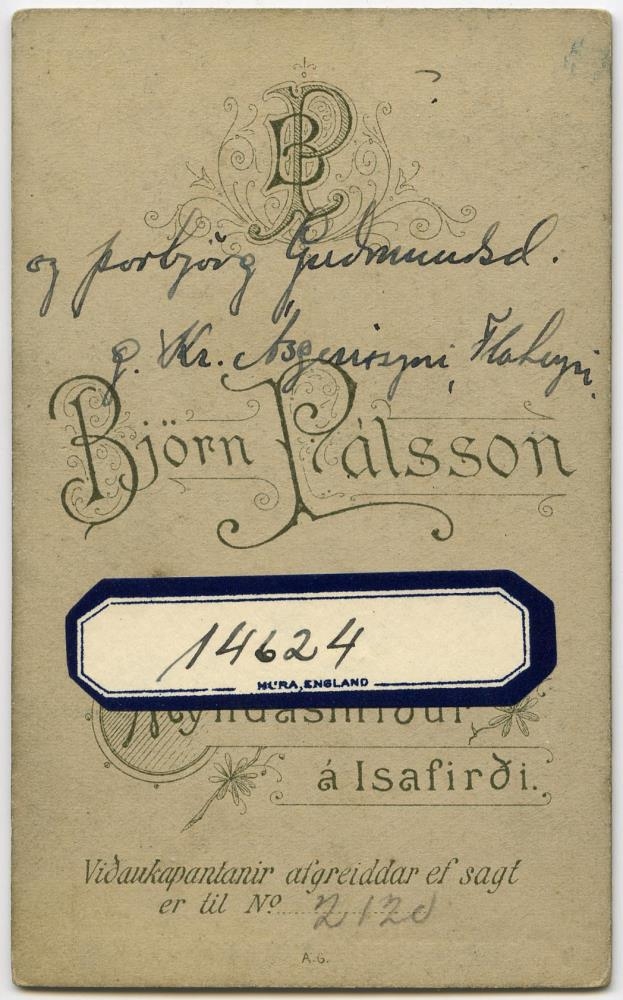 BP
og þorbjörg Guðmundsd.
g. Kr. Ásgeirssyni, Flateyri.
Björn Pálsson
14624
HURA, ENGLAND
Myndasmiður
á Isafirði.
Viðaukapantanir afgreiddar ef sagt
er til Nº 212
A.G.